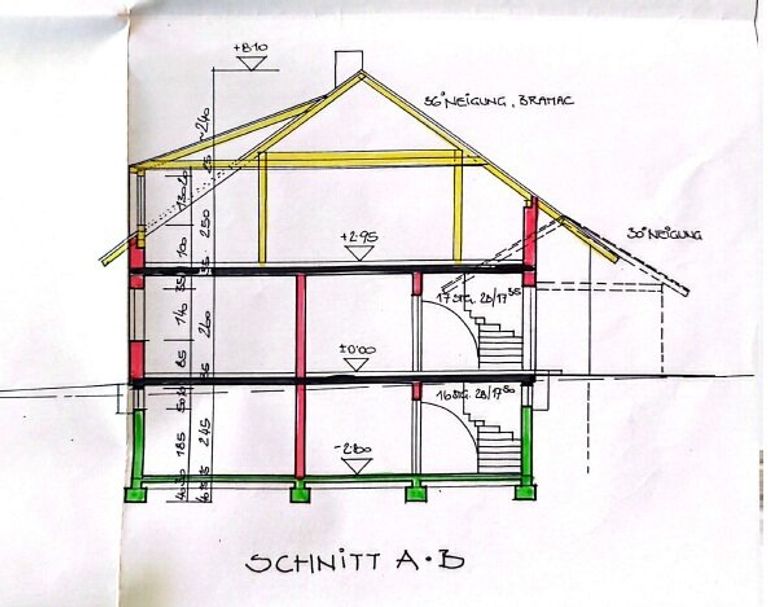 +8.10
36° NEIGUNG, BRAMAC
~240
25
30 20
250
100
+2.95
30° NEIGUNG
35
35
17 STG. 28/17³⁵
140
260
85
±0.00
35
50
16 STG. 28/17⁵⁰
185
245
-2.80
SCHNITT A·B